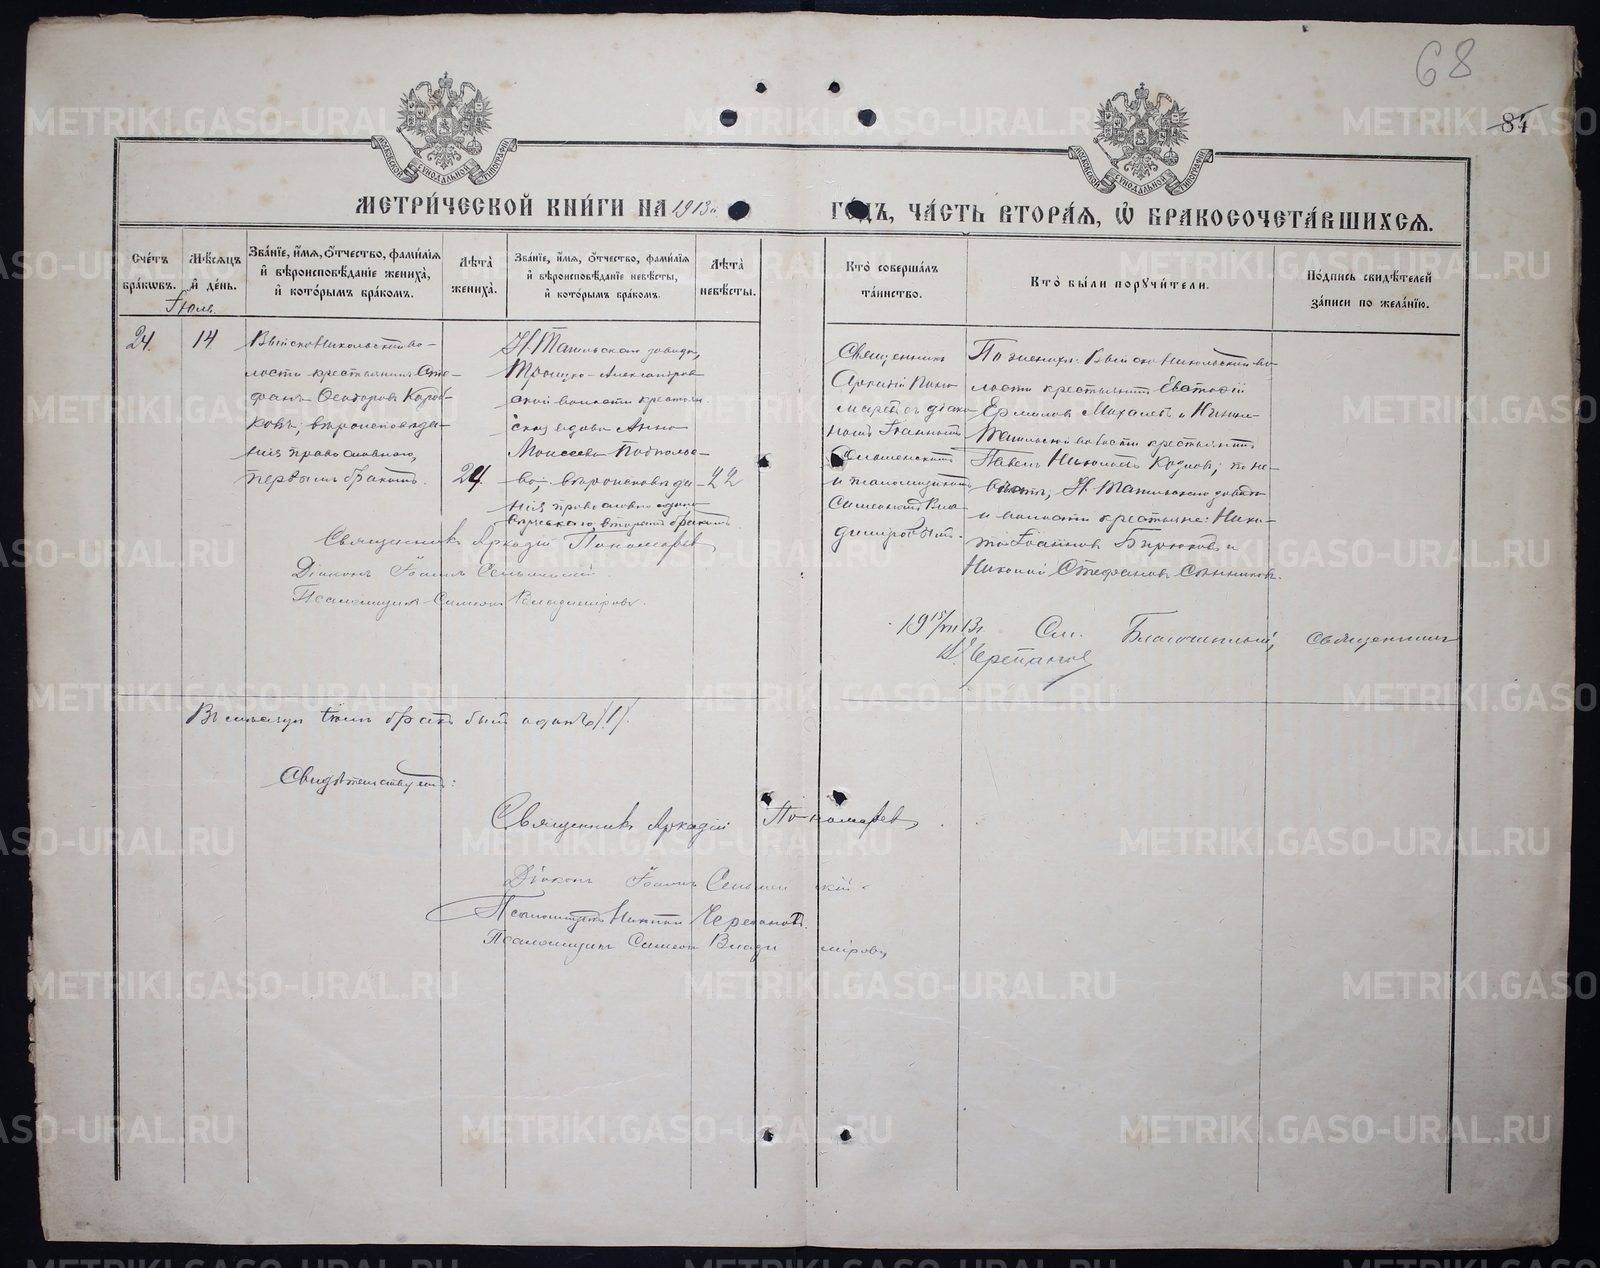 68
84
МОСКОВСКОЙ СѴНОДАЛЬНОЙ ТИПОГРАФІИ
МОСКОВСКОЙ СѴНОДАЛЬНОЙ ТИПОГРАФІИ
МЕТРИ́ЧЕСКОЙ КНИ́ГИ НА 1913й ГО́ДЪ, ЧА́СТЬ ВТОРА́Я, Ѡ҆ БРАКОСОЧЕТА́ВШИХСЯ.
Сче́тъ бра́кѡвъ.
Мѣ́сяцъ и҆ де́нь.
Зва́нїе, и҆́мя, ѻ҆́тчество, фами́лїя и҆ вѣроисповѣ́данїе жениха̀, и҆ кото́рымъ бра́комъ.
Лѣ́та жениха̀.
Зва́нїе, и҆́мя, ѻ҆́тчество, фами́лїя и҆ вѣроисповѣ́данїе невѣ́сты, и҆ кото́рымъ бра́комъ.
Лѣ́та невѣ́сты.
Кто̀ соверша́лъ та́инство.
Кто̀ бы́ли порꙋчи́тели.
По́дпись свидѣ́телей за́писи по жела́нїю.
Іюль
24.
14
Выйско Никольской во-
лости крестьянинъ Сте-
фанъ Ѳеодоровъ Короб-
ковъ, вѣроисповѣда-
нія православного,
первымъ бракомъ.
24.
Н. Тагильскаго завода,
Троицко-Александров
ской волости крестьян.
ская вдова Анна
Моисеева Подколзе-
ва, вѣроисповѣда-
нія православно едино
вѣрческаго, вторымъ бракомъ
22
Священникъ
Аркадій Поно
маревъ съ діако
номъ Іоанномъ
Сельменскимъ
и псаломщикомъ
Симеономъ Вла
диміровымъ.
По женихѣ: Выйско Никольской во-
лости крестьянинъ Евстафій
Ермиловъ Михалевъ и Нижне-
Тагильской волости крестьянинъ
Павелъ Козловъ; по не-
вѣстѣ, Н. Тагильскаго завода
и волости крестьяне: Ники-
та Іоанновъ Бирюковъ и
Николай Стефановъ
Священникъ Аркадій Пономаревъ
Діаконъ Іоаннъ Сельменскій.
Псаломщикъ Симеонъ Владиміровъ.
19 15/VII 13 г. См. Благочинный, священникъ
Черепановъ
Въ мѣсяцѣ Іюлѣ бракъ былъ одинъ /1/.
Свидѣтельствуемъ:
Священникъ Аркадій Пономаревъ
Діаконъ Іоаннъ Сельменскій.
Псаломщикъ Никита Черепановъ.
Псаломщикъ Симеонъ Владиміровъ